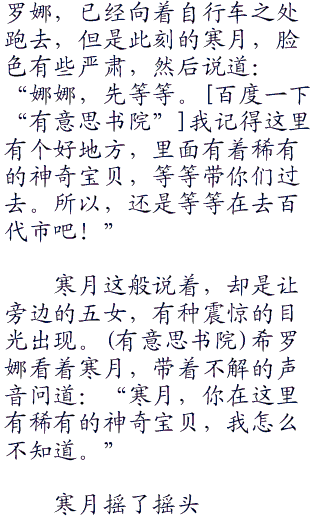 罗娜，已经向着自行车之处
跑去，但是此刻的寒月，脸
色有些严肃，然后说道：
“娜娜，先等等。[百度一下
“有意思书院”]我记得这里
有个好地方，里面有着稀有
的神奇宝贝，等等带你们过
去。所以，还是等等在去百
代市吧！”
寒月这般说着，却是让
旁边的五女，有种震惊的目
光出现。(有意思书院)希罗
娜看着寒月，带着不解的声
音问道：“寒月，你在这里
有稀有的神奇宝贝，我怎么
不知道。”
寒月摇了摇头